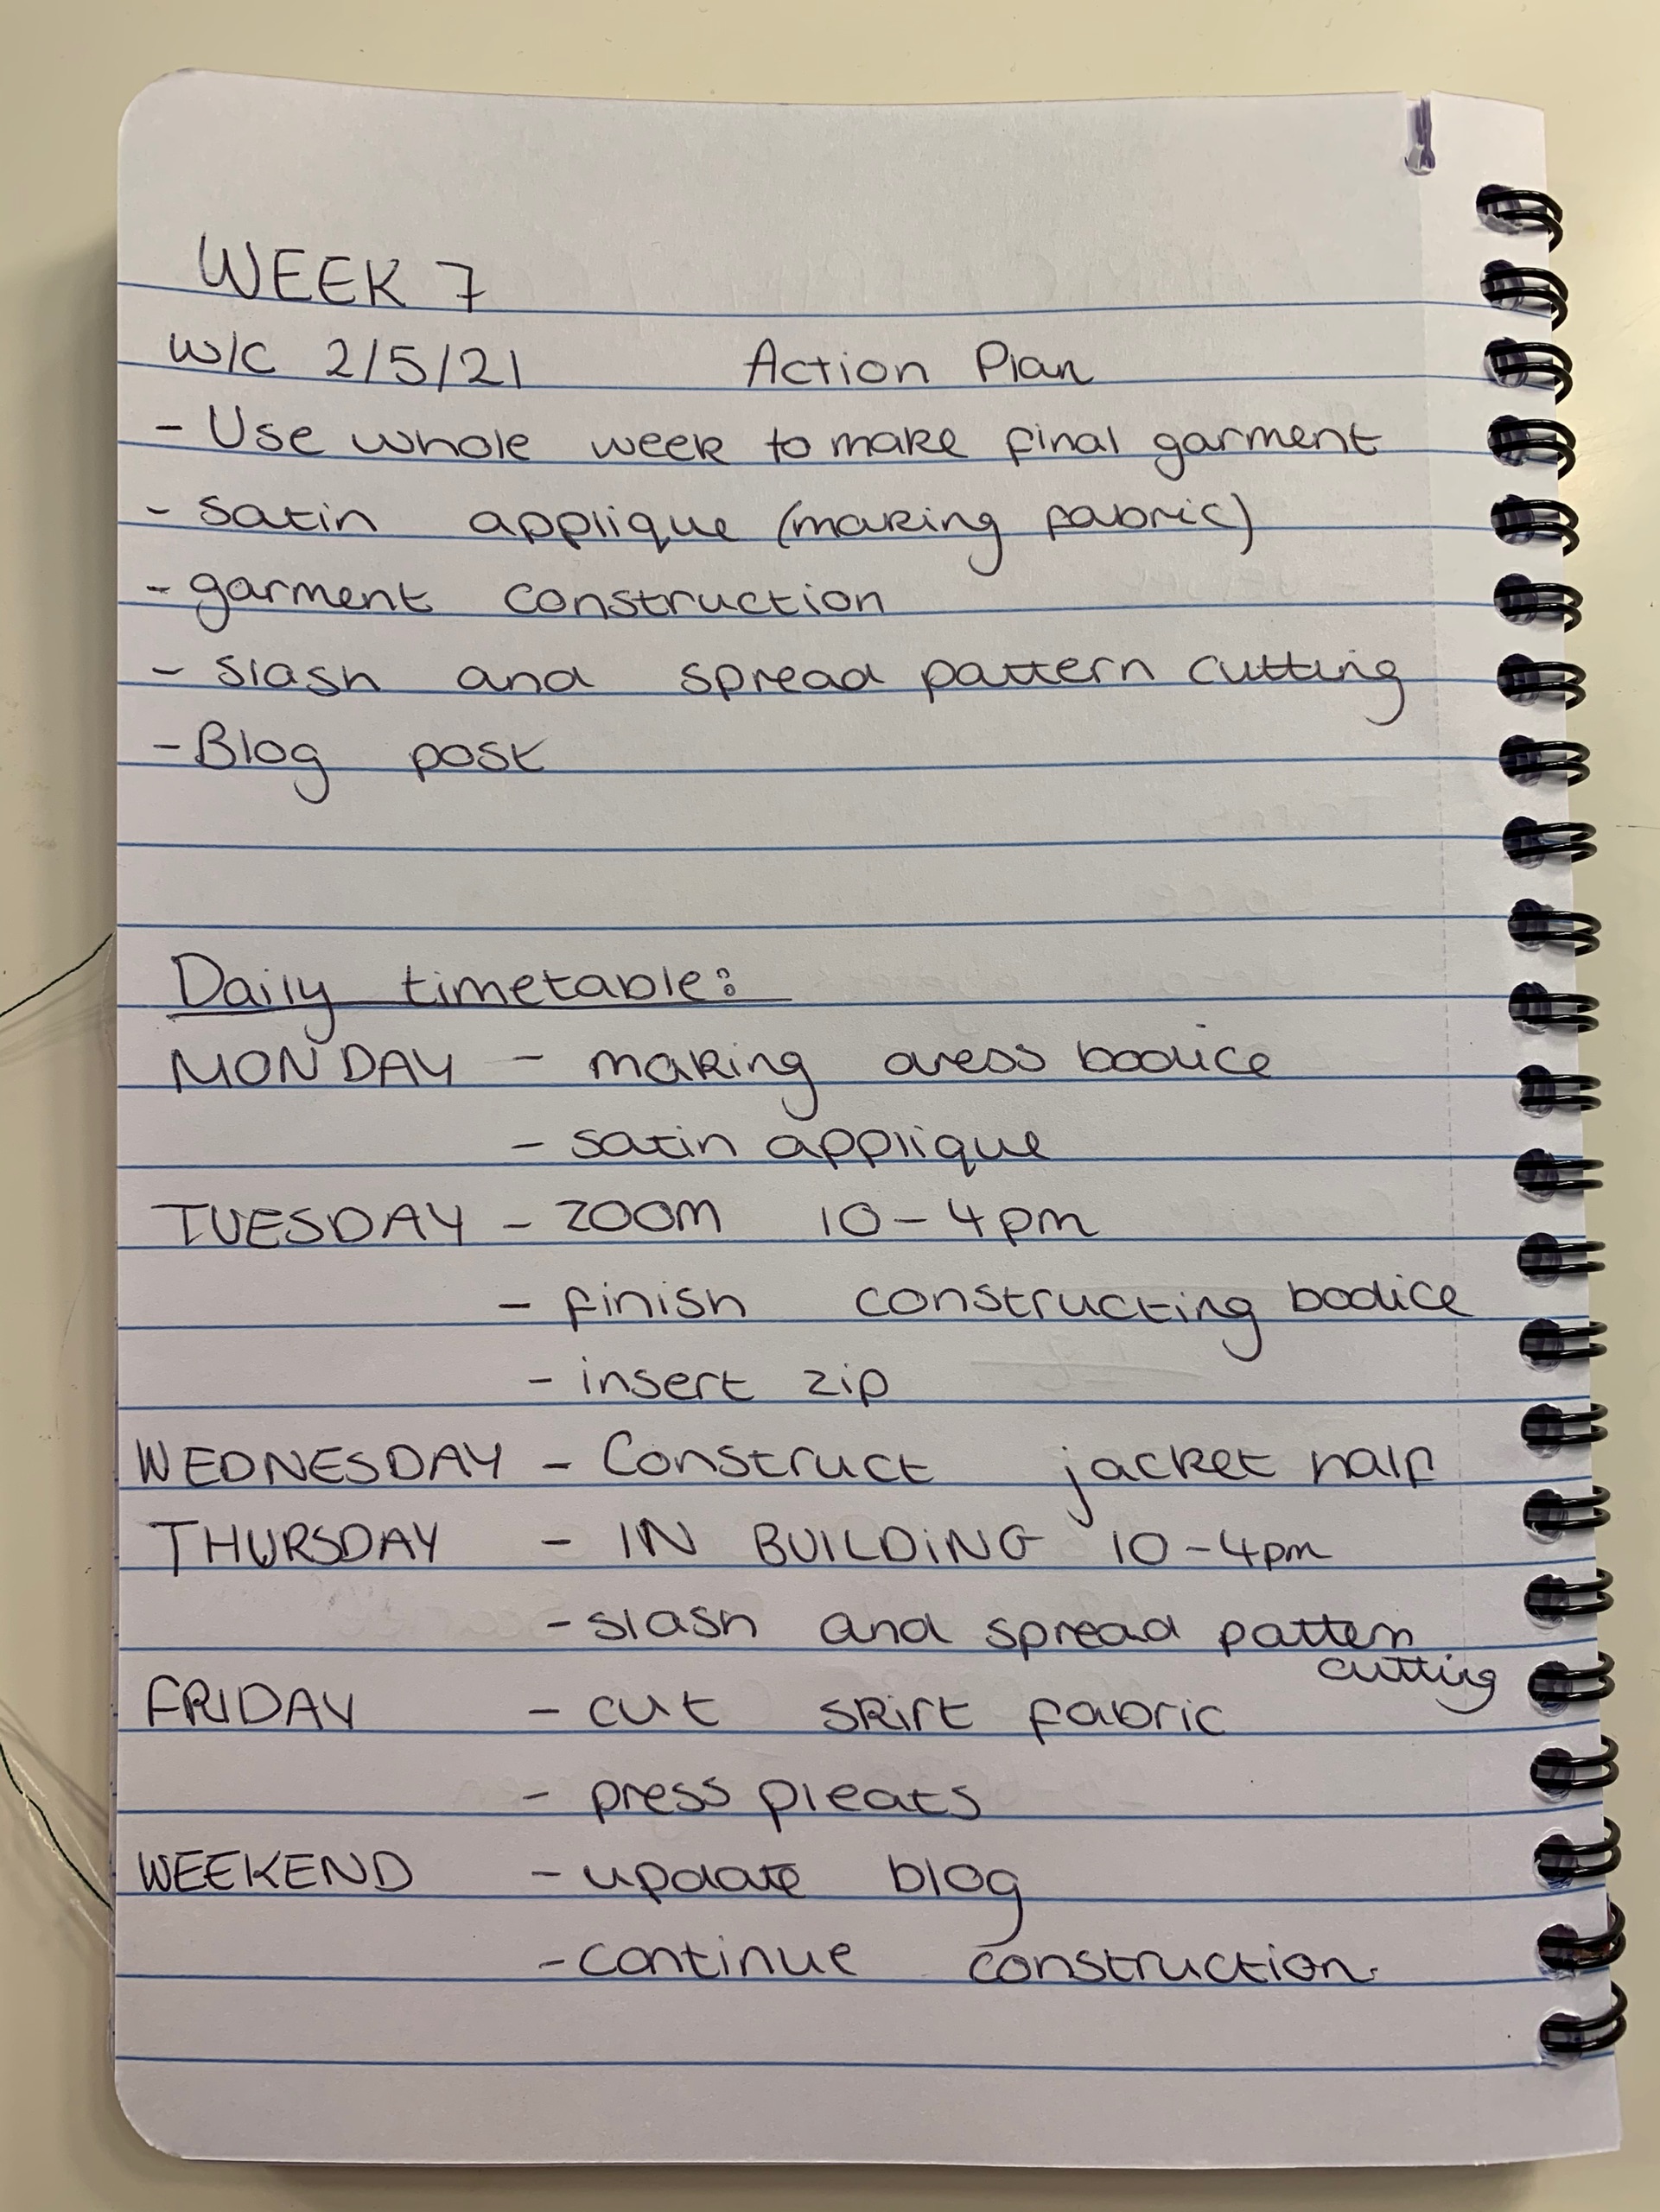 WEEK 7
W/C 2/5/21 Action Plan
- Use whole week to make final garment
- satin applique (making fabric)
- garment construction
- slash and spread pattern cutting
- Blog post
Daily timetable:
MONDAY - making dress bodice
- satin applique
TUESDAY - ZOOM 10-4pm
- finish constructing bodice
- insert zip
WEDNESDAY - Construct jacket half
THURSDAY - IN BUILDING 10-4pm
- slash and spread pattern
cutting
FRIDAY - cut skirt fabric
- press pleats
WEEKEND - update blog
- continue construction.